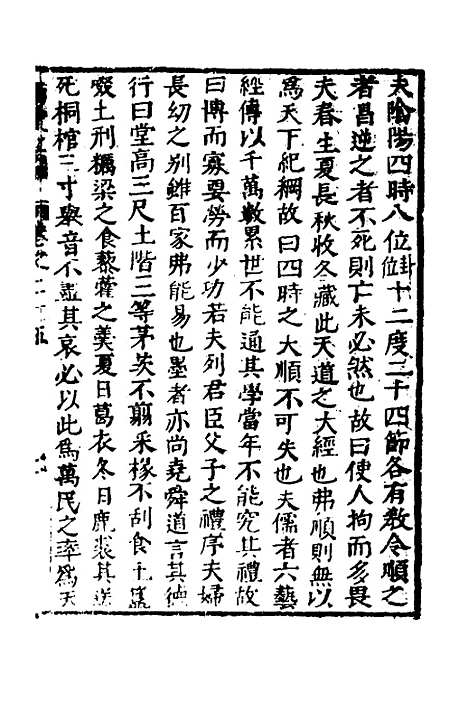 夫陰陽四時八位卦位十二度二十四節各有教令順之
者昌逆之者不死則亡未必然也故曰使人拘而多畏
夫春生夏長秋收冬藏此天道之大經也弗順則無以
爲天下紀綱故曰四時之大順不可失也夫儒者六藝
經傳以千萬數累世不能通其學當年不能究其禮故
曰博而寡要勞而少功若夫列君臣父子之禮序夫婦
長幼之別雖百家弗能易也墨者亦尚堯舜道言其德
行曰堂高三尺土階三等茅茨不翦采椽不刮食土簋
啜土刑糲粱之食藜藿之羹夏日葛衣冬日鹿裘其送
死桐棺三寸舉音不盡其哀必以此爲萬民之率爲天